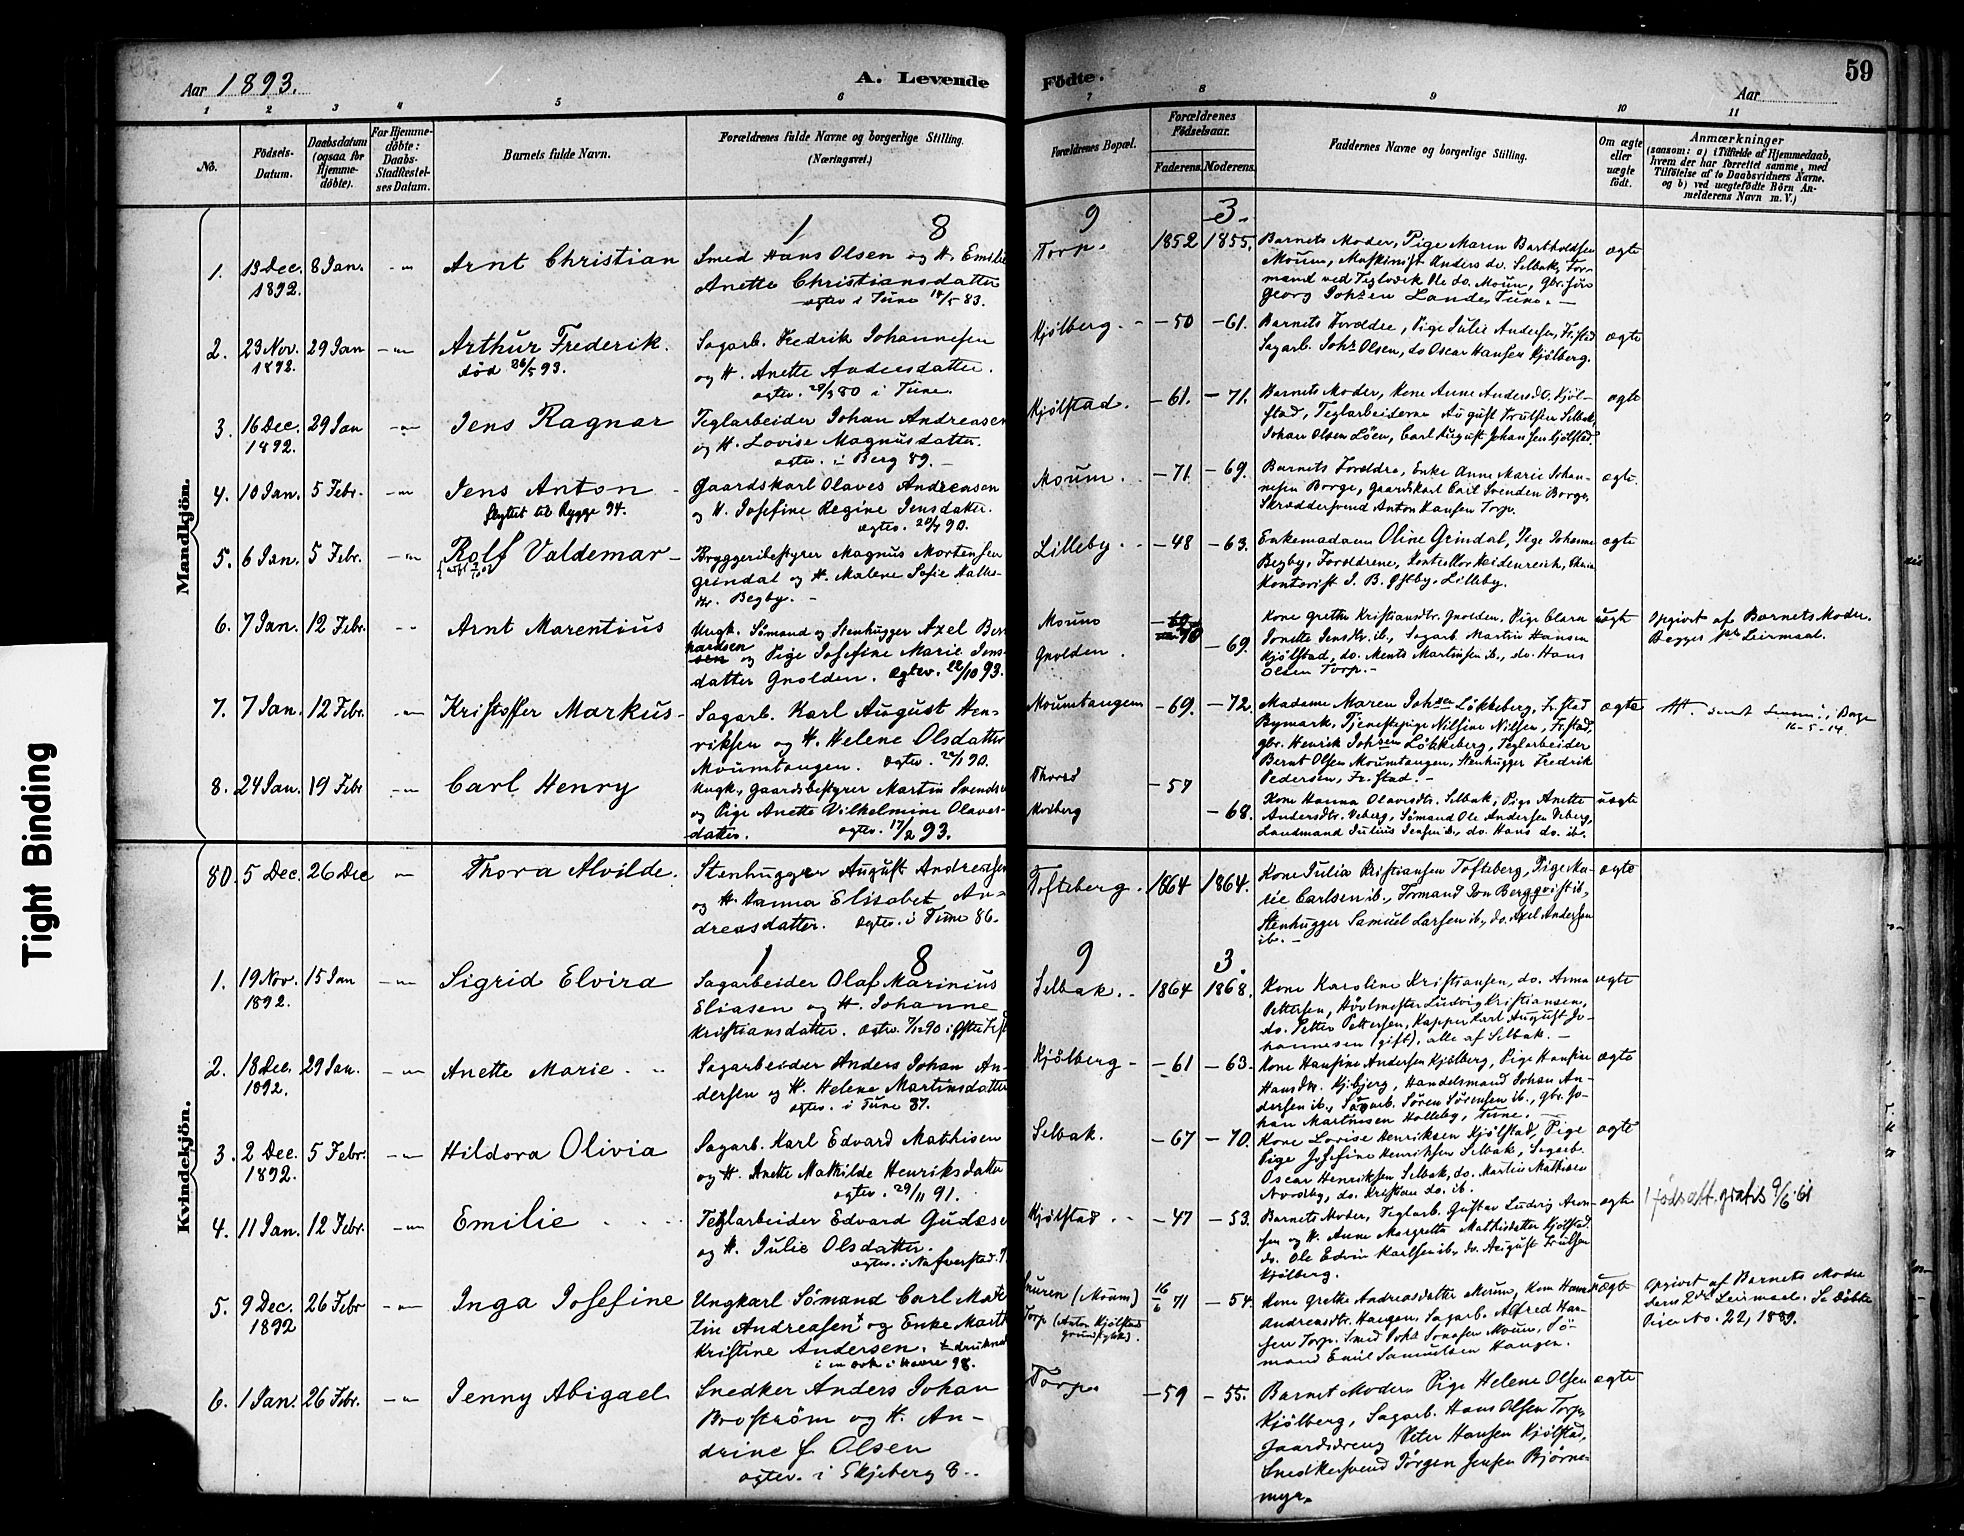 59
Aar 1893.
A. Levende
Födte.
Aar
1 2 3 4 5 6 7 8 9 10 11
No.
Födsels-Datum.
Daabsdatum (ogsaa for Hjemme-döbte).
For Hjemme-döbte: Daabs-Stadfæstel-ses Datum.
Barnets fulde Navn.
Forældrenes fulde Navne og borgerlige Stilling. (Næringsvei.)
Forældrenes Bopæl.
Forældrenes Födselsaar.
Faderens. Moderens.
Faddernes Navne og borgerlige Stilling.
Om ægte eller uægte födt.
Anmærkninger
(saasom: a) i Tilfælde af Hjemmedaab,
hvem der har forrettet samme, med
Tilföielse af to Daabsvidners Navne.
og b) ved uægtefödte Börn An-
melderens Navn m. V.)
Mandkjön.
1 8 9 3.
1. 13 Dec. 1892. 8 Jan. Arnt Christian
Smed Hans Olsen og H. Emilie
Anette Christiansdatter
ægtev. i Tune 14/5 83.
Torp. 1852 1855.
Barnets Moder, Pige Maren Bartholdsen
Moum, Maskinist Anders do. Selbak, For-
mand ved Teglværk Ole do. Moum, gbr. søn
Georg Johsen Lande, Tune.
ægte
2. 23 Nov. 1892. 29 Jan Arthur Frederik.
død 26/5 93.
Sagarb. Fredrik Johannesen
og H. Anette Andersdatter.
ægtev. 80 i Tune.
Kjølberg. -50 -61.
Barnets Forældre, Pige Julie Andersen, Fr.stad
Sagarb. Johs Olsen, do Oscar Hansen Kjølberg.
ægte
3. 16 Dec. 1892. 29 Jan Jens Ragnar
Teglarbeider Johan Andreasen
og H. Lovise Magnusdatter.
ægtev. i Berg 89.
Kjølstad. -61. -71.
Barnets Moder, Kone Anne Andersdtr. Kjøl-
stad, Teglarbeiderne August Trulsen Selbak,
Johan Olsen Løen, Carl August Johansen Kjølstad.
ægte
4. 10 Jan. 5 Febr. Jens Anton
flyttet til Rygge 94.
Gaardskarl Olaves Andreasen
og H. Josefine Regine Jensdatter.
ægtev. 90.
Moum. -71 -69.
Barnets Forældre, Enke Anne Marie Johan-
nesen Borge, Gaardskarl Carl Svendsen Borge,
Skræddersvend Anton Hansen Torp.
ægte.
5. 6 Jan. 5 Febr. Rolf Valdemar
Bryggeribestyrer Magnus Mortensen
Grindal og H. Malene Sofie
Begby.
Lilleby. -48 -63.
Enkemadam Oline Grindal, Pige Johanne
Begby, Forældrene, Kontrollør Heidenreich,
Kontorist J. B. Lilleby.
ægte
6. 7 Jan. 12 Febr. Arnt Marentius
Ungk. Sømand og Stenhugger Axel Ber
nardsen og Pige Josefine Marie Jens-
datter Gnolden. Ægtev. 22/10 93.
Moum
Gnolden. 70 -69.
Kone Grethe Kristiansdtr. Gnolden, Pige Clara
Jonette Jensdtr. ib., Sagarb. Martin Hansen
Kjølstad, do. Ments Martinsen ib., do. Hans
Olsen Torp.
uægte
Opgivet af Barnets Moder.
Begges 1ste Leirmaal.
7. 7 Jan. 12 Febr. Kristoffer Markus
Sagarb. Karl August Hen-
riksen og H. Helene Olsdatter
Moumtangen. ægtev. 90.
Moumtangen -69. -72.
Madame Maren Johsen Løkkeberg, Fr.stad
Bymark, Tjenestepige Nilsine Nilsen, Fr.stad,
gbr. Henrik Johsen Løkkeberg, Teglarbeider
Bernt Olsen Moumtangen, Stenhugger Fredrik
Pedersen, Fr.stad.
ægte
16-5-14.
8. 24 Jan. 19 Febr Carl Henry
Ungk., Gaardsbestyrer Martin Svendsen
og Pige Anette Vilhelmine Olaves-
datter. ægtev. 17/2 93.
-57 -68.
Kone Hanna Olavesdtr. Selbak, Pige Anette
Andersdtr. Veberg, Sømand Ole Andersen Veberg,
Landmand Julius Jensen ib., do. Hans do. ib.
uægte
Kvindekjön.
80. 5 Dec. 26 Dec Thora Alvilde.
Stenhugger August Andreasen
og H. Hanna Elisabet An-
dreasdatter. Ægtev. i Tune 86.
Tofteberg. 1864 1864.
Kone Julie Kristiansen Tofteberg, Pige Ma-
rie Carlsen ib., Formand Jon Bergqvist ib.,
Stenhugger Samuel Larsen ib., do. Axel Andersen
ib.
ægte
1 8 9 3.
1. 19 Nov. 1892. 15 Jan Sigrid Elvira
Sagarbeider Olaf Marinius
Eliasen og H. Johanne
Kristiansdatter.
Selbak. 1864 1868.
Kone Karoline Kristiansen, do. Anna
Pettersen, Høvlmester Ludvig Kristiansen,
do. Petter Pettersen, Kapper Karl August Jo-
hannesen (gift), alle af Selbak.
ægte
2. 18 Dec. 1892. 29 Jan. Anette Marie
Sagarbeider Anders Johan An-
dersen og H. Helene Martinsdatter
ægtev. i Tune 87.
Kjølberg -61 -63.
Kone Hansine Andersen Kjølberg, Pige Hansine
Hansdtr. Kjølberg, Handelsmand Johan An-
dersen ib., Sagarb. Søren Sørensen ib., gbr. Jo-
han Martinsen Halleby, Tune.
ægte
3. 2 Dec. 1892. 5 Febr. Hildora Olivia
Sagarb. Karl Edvard Mathisen
og H. Anette Mathilde Henriksdatter
ægtev. 29/11 91.
Selbak. -67 -70.
Kone Lovise Henriksen Kjølstad, Pige
Pige Josefine Henriksen Selbak, Sagarb.
Oscar Henriksen Selbak, do. Martin Mathisen
Nordby, do. Kristian do. ib.
ægte
4. 11 Jan. 12 Febr. Emilie
Teglarbeider Edvard Gudesen
og H. Julie Olsdatter.
ægtev. i Nafverstad.
Kjølstad -47 -53.
Barnets Moder, Teglarb. Gustav Ludvig Aron-
sen og H. Anne Margrethe Mathisdatter Kjølstad.
do. Ole Edvin Karlsen ib., do. August Trulsen
Kjølberg.
ægte
1 fødsatt. gratis 9/6-61
5. 9 Dec. 1892 26 Febr Inga Josefine
Ungkarl Sømand Carl Mar
tin Andreasen og Enke Marth
Kristine Andersen. druknet
i Havre 98.
(Moum)
Torp (Anton Kjølstad
grund).
16/6 71 -54.
Kone Grethe Andreasdatter Moum, Kone Hanne
Andreasdtr. Haugen, Sagarb. Alfred Han-
sen Torp. Smed Johs Jonasen Moum, Sø-
mand Emil Samuelsen Haugen.
uægte
Opgivet af Barnets Moder
dens 2det Leirmaal. Se Døbte
Piger No. 22, 1889.
6. 1 Jan. 26 Febr. Jenny Abigael
Snedker Anders Johan
Brostrøm og H. An-
drine f. Olsen
ægtev. i Skjeberg 8..
Torp -59 -55.
Barnets Moder, Pige Helene Olsen
Kjølberg, Sagarb. Hans Olsen Torp,
Gaardsdreng Peter Hansen Kjølstad,
Snedkersvend Jørgen Jensen Bjørne-
myr.
ægte
Tight Binding